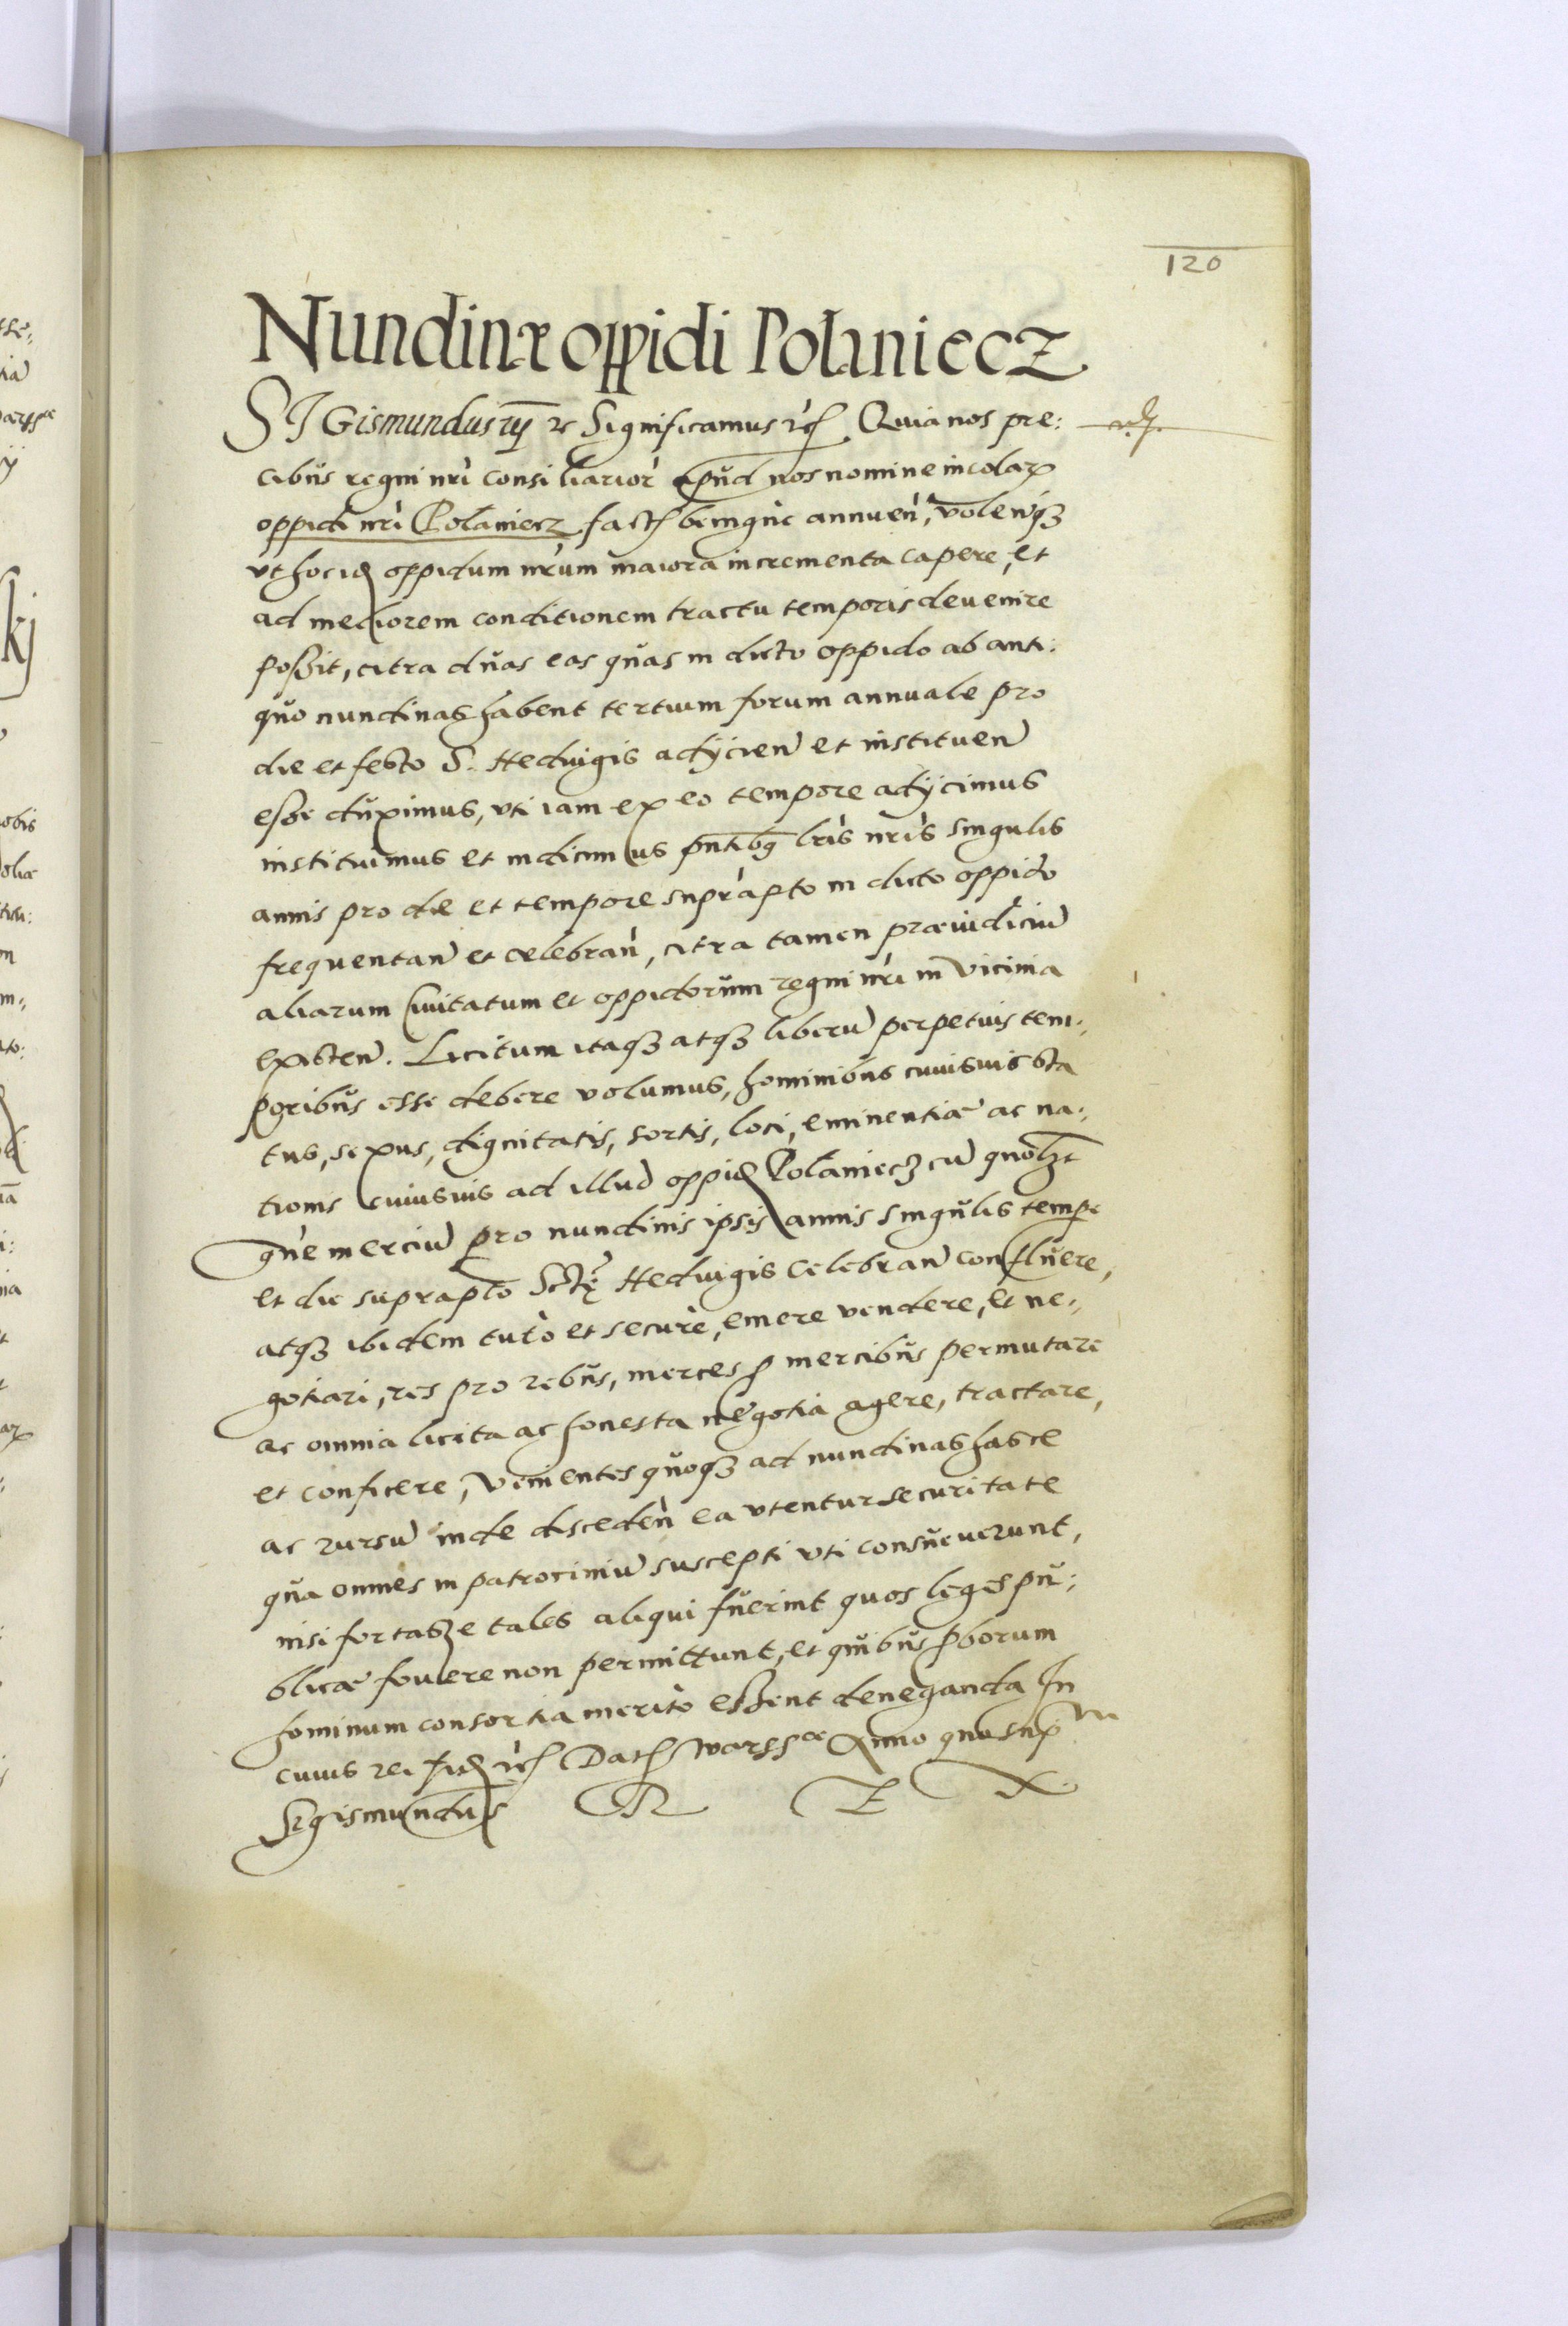 120
Nundinæ oppidi Polaniecz
SIGismundus iij etc Significamus etc. Quia nos pre:
cibus regni nrì consiliarior apud nos nomine incolar
oppidi nrì Polaniecz fact benignè annuen, volenqz
vt hoc id oppidum nrum maiora incrementa capere, et
ad meliorem conditionem tractu temporis devenire
possit, citra duas eas quas in dicto oppido ab anti:
quo nundinas habent tertium forum annuale pro
die et festo S. Hedvigis adijcien et instituen
esse duximus, vti iam ex eo tempore adijcimus
instituimus et indicimus pntibq lrìs nrìs singulis
annis pro die et tempore supràpto in dicto oppido
frequentan et celebran, citra tamen præiudiciu
aliarum Civitatum et oppidorum regni nrì in vicinia
existen. Licitum itaqz atqz liberu perpetuis tem:
poribus esse debere volumus, hominibus cuiusvis sta
tus, sexus, dignitatis, sortis, loci, eminentiæ ac na:
tionis cuiusvis ad illud oppid Polaniecz cu quolzt
gne merciu pro nundinis ipsis annis singulis tempe
et die suprapto Sctę Hedvigis celebran confluere,
atqz ibidem tutò et securè, emere vendere, et ne:
gotiari, res pro rebus, merces p mercibus permutare
ac omnia licita ac honesta negotia agere, tractare,
et conficere, Venientes quoqz ad nundinas hasce
ac rursu inde disceden ea vtentur securitate
qua omnes in patrociniu suscepti vti consueverunt,
nisi fortasse tales aliqui fuerint quos leges pu:
blicæ fovere non permittunt, et quibus pborum
hominum consortia meritò essent deneganda In
cuius rei fid etc Dat Warssæ Anno quo sup
Sigismundus R